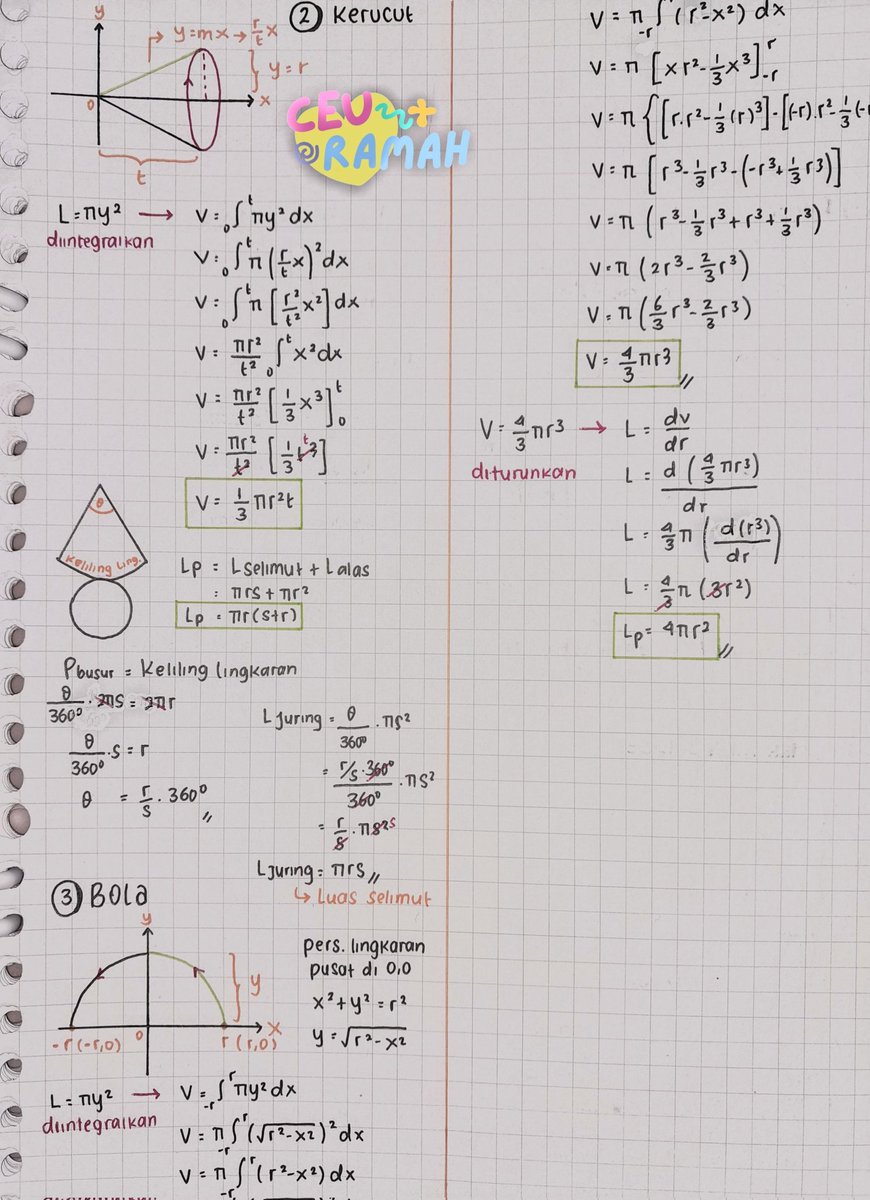 ② Kerucut
y
y=mx → r/t x
} y=r
0
x
t
CEU
RAMAH
L=πy² → V = ₀∫ᵗ πy² dx
diintegralkan
V = ₀∫ᵗ π (r/t x)² dx
V = ₀∫ᵗ π [r²/t² x²] dx
V = πr²/t² ₀∫ᵗ x² dx
V = πr²/t² [1/3 x³]ᵗ₀
V = πr²/t² [1/3 t³] t
V = 1/3 πr²t
θ
Keliling ling.
Lp = Lselimut + Lalas
= πrs + πr²
Lp = πr(s+r)
Pbusur = Keliling lingkaran
θ/360⁰ · 2πs = 2πr
θ/360⁰ · s = r
θ = r/s · 360⁰ //
Ljuring = θ/360⁰ · πs²
= r/s · 360⁰/360⁰ · πs²
= r/s · πs² s
Ljuring = πrs //
↳ Luas selimut
③ Bola
y
r
} y
0
x
-r (-r,0)
r (r,0)
pers. lingkaran
pusat di 0,0
x² + y² = r²
y = √r²-x²
L=πy² → V = ₋ᵣ∫ʳ πy² dx
diintegralkan
V = π ₋ᵣ∫ʳ (√r²-x²)² dx
V = π ₋ᵣ∫ʳ (r²-x²) dx
V = π ₋ᵣ∫ (r²-x²) dx
V = π [xr² - 1/3 x³]ʳ₋ᵣ
V = π {[r.r² - 1/3 (r)³] - [(-r).r² - 1/3 (-r
V = π [r³ - 1/3 r³ - (-r³ + 1/3 r³)]
V = π (r³ - 1/3 r³ + r³ + 1/3 r³)
V = π (2r³ - 2/3 r³)
V = π (6/3 r³ - 2/3 r³)
V = 4/3 πr³ //
V = 4/3 πr³ → L = dv/dr
diturunkan
L = d (4/3 πr³)/dr
L = 4/3 π (d(r³)/dr)
L = 4/3 π (3r²)
Lp = 4πr² //